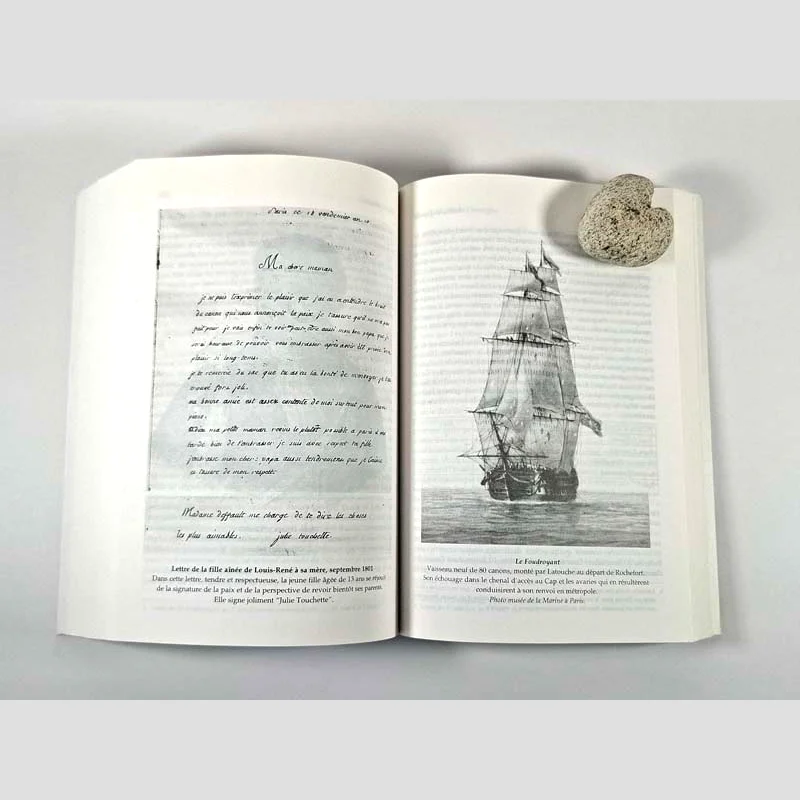 Paris ce 18 vendemier an 10
Ma chere maman
je ne puis t'exprimer le plaisir que j'ai eu a entendre le bruit
de canon qui nous annonçoit la paix je t'assure qu'il ne m'a pas
fait peur je vais enfin te voir peut-être aussi mon bon papa que je
serai heureuse de pouvoir vous embrasser après avoir été privée de ce
plaisir si long-tems.
je te remercie du sac que tu as eu la bonté de m'envoyer je l'ai
trouvé fort joli.
ma bonne amie est assez contente de moi surtout pour mon
piano.
Adieu ma petite maman reviens le plutot possible a paris il me
tarde bien de t'embrasser je suis avec respect ta fille
j'embrasse mon cher papa aussi tendrement que je t'aime
et l'assure de mon respect
Madame deffault me charge de te dire les choses
les plus aimables. julie touchette.
Lettre de la fille aînée de Louis-René à sa mère, septembre 1801
Dans cette lettre, tendre et respectueuse, la jeune fille âgée de 13 ans se réjouit
de la signature de la paix et de la perspective de revoir bientôt ses parents.
Elle signe joliment "Julie Touchette".
Le Foudroyant
Vaisseau neuf de 80 canons, monté par Latouche au départ de Rochefort.
Son échouage dans le chenal d'accès au Cap et les avaries qui en résultèrent
conduisirent à son renvoi en métropole.
Photo musée de la Marine à Paris.